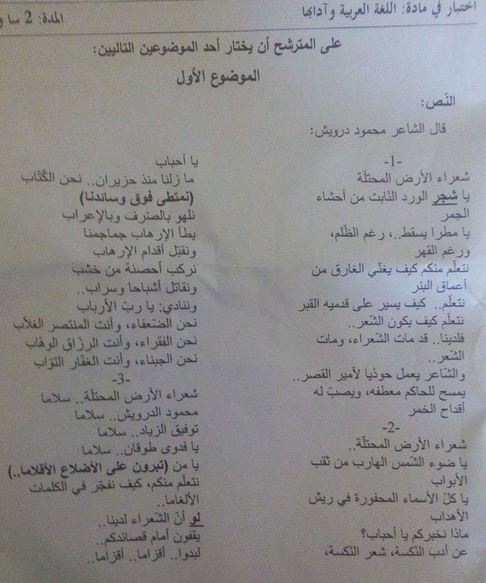 اختبار في مادة: اللغة العربية وآدابها
المدة: 2 سا و
على المترشح أن يختار أحد الموضوعين التاليين:
الموضوع الأول
النّص:
قال الشاعر محمود درويش:
-1-
شعراء الأرض المحتلّة
يا شجر الورد النّابت من أحشاء
الجمر
يا مطرا يسقط..، رغم الظّلم،
ورغم القهر
نتعلّم منكم كيف يغنّي الغارق من
أعماق البئر
نتعلّم.. كيف يسير على قدميه القبر
نتعلّم كيف يكون الشّعر..
فلدينا.. قد مات الشّعراء، ومات
الشّعر..
والشّاعر يعمل حوذيا لأمير القصر..
يمسح للحاكم معطفه، ويصبّ له
أقداح الخمر
-2-
شعراء الأرض المحتلّة..
يا ضوء الشّمس الهارب من ثقب
الأبواب
يا كلّ الأسماء المحفورة في ريش
الأهداب
ماذا نخبركم يا أحباب؟
عن أدب النّكسة، شعر النّكسة،
يا أحباب
ما زلنا منذ حزيران.. نحن الكُتّاب
(نمتطى فوق وسائدنا)
نلهو بالصّرف وبالإعراب
يطأ الإرهاب جماجمنا
ونقبّل أقدام الإرهاب
نركب أحصنة من خشب
ونقاتل أشباحا وسراب..
وننادي: يا ربّ الأرباب
نحن الضّعفاء، وأنت المنتصر الغلاّب
نحن الفقراء، وأنت الرزّاق الوهّاب
نحن الجبناء، وأنت الغفّار التوّاب
-3-
شعراء الأرض المحتلّة.. سلاما
محمود الدرويش.. سلاما
توفيق الزياد.. سلاما
يا فدوى طوقان.. سلاما
يا من (تبرون على الأضلاع الأقلاما..)
نتعلّم منكم، كيف نفجّر في الكلمات
الألغاما..
لو أنّ الشّعراء لدينا..
يقفون أمام قصائدكم..
لبدوا.. أقزاما.. أقزاما..